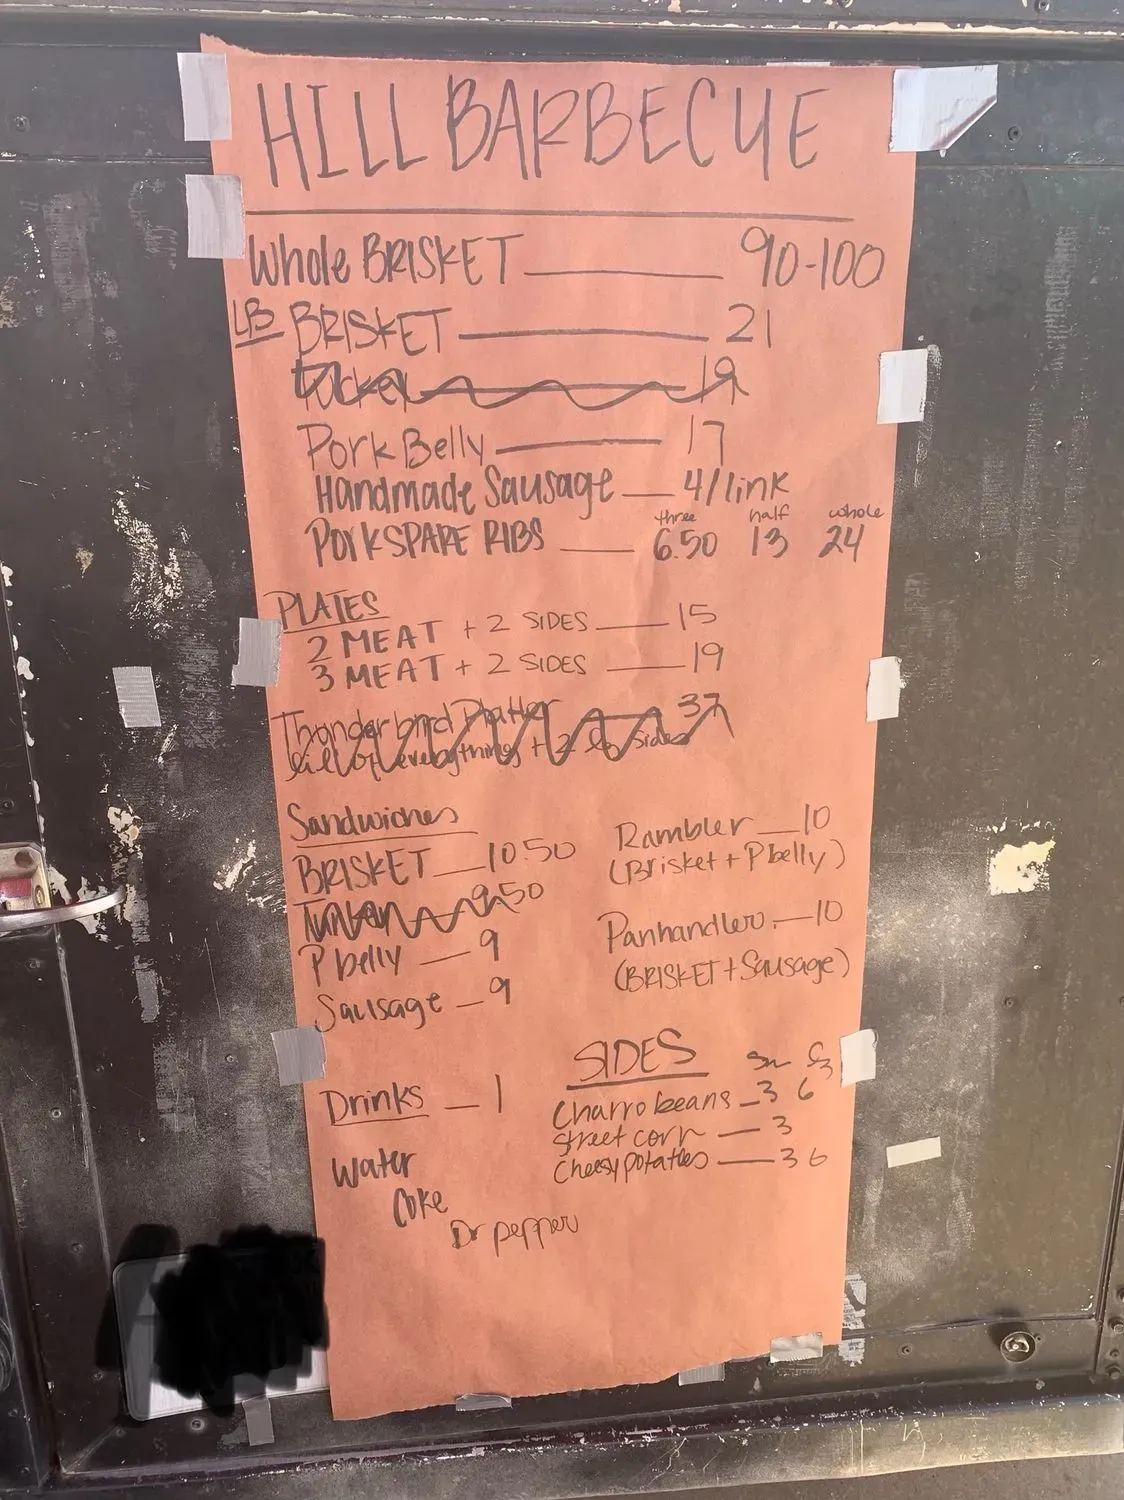 HILL BARBECUE
Whole BRISKET 90-100
LB BRISKET 21
19
Pork Belly 17
Handmade Sausage 4/link
three half whole
PORK SPARE RIBS 6.50 13 24
PLATES
2 MEAT + 2 SIDES 15
3 MEAT + 2 SIDES 19
Thunderbird Platter 37
of everything + 2 Sides
Sandwiches
BRISKET 10.50
9.50
P belly 9
Sausage 9
Rambler 10
(Brisket + P belly)
Panhandler 10
(BRISKET + Sausage)
Drinks 1
Water
Coke
Dr pepper
SIDES
Charro beans 3 6
Street corn 3
Cheesy potatoes 3 6